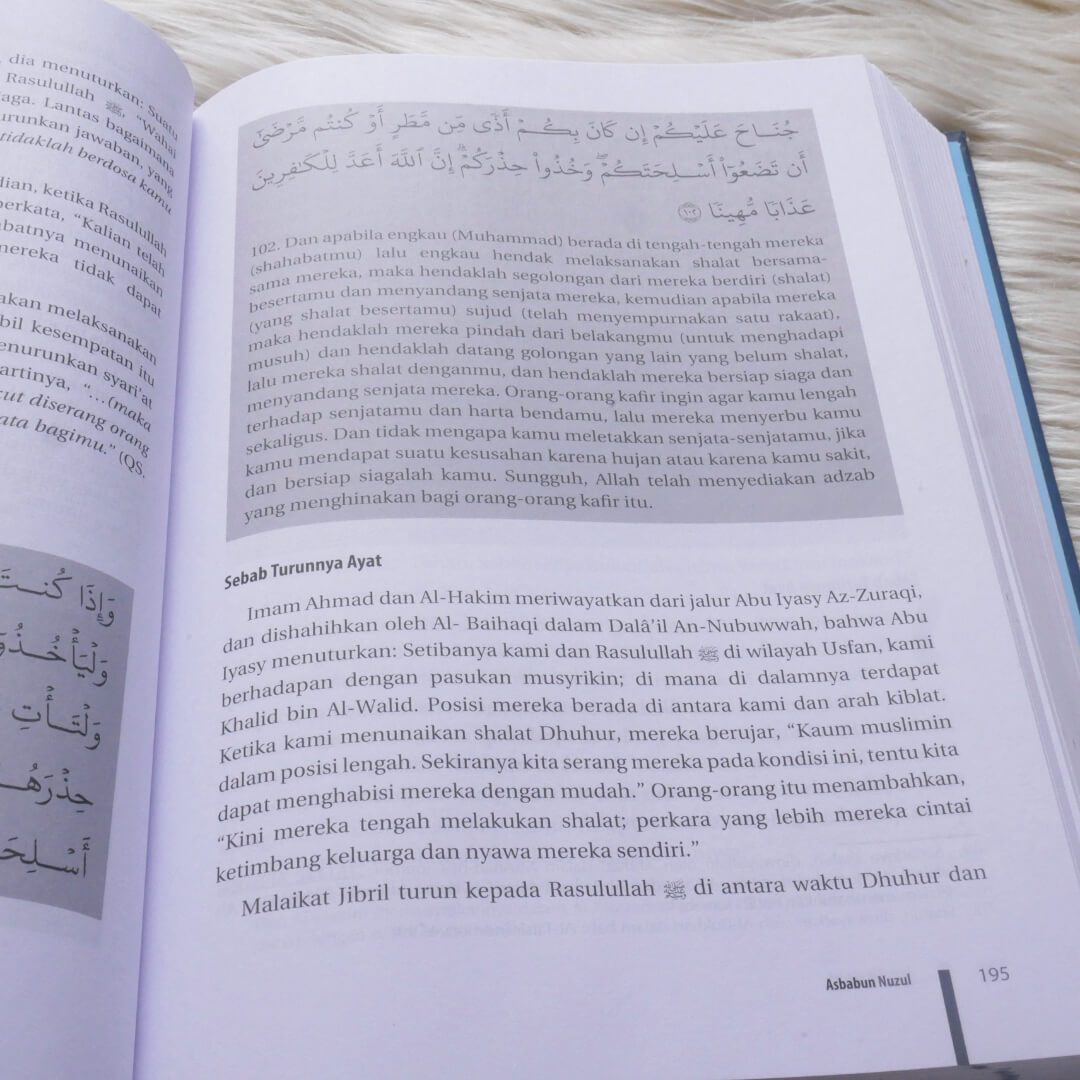 dia menuturkan: Suatu
Rasulullah ﷺ, "Wahai
Lantas bagaimana
jawaban, yang
tidaklah berdosa kamu
ketika Rasulullah
berkata, "Kalian telah
menunaikan
mereka tidak dapat
akan melaksanakan
kesempatan itu
menurunkan syari'at
artinya, "…(maka
diserang orang
bagimu." (QS.
وَإِذَا كُنتَ
وَلْيَأْخُذُوٓا۟
وَلْتَأْتِ
حِذْرَهُمْ
جُنَاحَ عَلَيْكُمْ إِن كَانَ بِكُمْ أَذًى مِّن مَّطَرٍ أَوْ كُنتُم مَّرْضَىٰٓ
أَن تَضَعُوٓا۟ أَسْلِحَتَكُمْ ۖ وَخُذُوا۟ حِذْرَكُمْ ۗ إِنَّ ٱللَّهَ أَعَدَّ لِلْكَٰفِرِينَ
عَذَابًا مُّهِينًا ١٠٢
102. Dan apabila engkau (Muhammad) berada di tengah-tengah mereka
(shahabatmu) lalu engkau hendak melaksanakan shalat bersama-
sama mereka, maka hendaklah segolongan dari mereka berdiri (shalat)
besertamu dan menyandang senjata mereka, kemudian apabila mereka
(yang shalat besertamu) sujud (telah menyempurnakan satu rakaat),
maka hendaklah mereka pindah dari belakangmu (untuk menghadapi
musuh) dan hendaklah datang golongan yang lain yang belum shalat,
lalu mereka shalat denganmu, dan hendaklah mereka bersiap siaga dan
menyandang senjata mereka. Orang-orang kafir ingin agar kamu lengah
terhadap senjatamu dan harta bendamu, lalu mereka menyerbu kamu
sekaligus. Dan tidak mengapa kamu meletakkan senjata-senjatamu, jika
kamu mendapat suatu kesusahan karena hujan atau karena kamu sakit,
dan bersiap siagalah kamu. Sungguh, Allah telah menyediakan adzab
yang menghinakan bagi orang-orang kafir itu.
Sebab Turunnya Ayat
Imam Ahmad dan Al-Hakim meriwayatkan dari jalur Abu Iyasy Az-Zuraqi,
dan dishahihkan oleh Al- Baihaqi dalam Dalâ'il An-Nubuwwah, bahwa Abu
Iyasy menuturkan: Setibanya kami dan Rasulullah ﷺ di wilayah Usfan, kami
berhadapan dengan pasukan musyrikin; di mana di dalamnya terdapat
Khalid bin Al-Walid. Posisi mereka berada di antara kami dan arah kiblat.
Ketika kami menunaikan shalat Dhuhur, mereka berujar, "Kaum muslimin
dalam posisi lengah. Sekiranya kita serang mereka pada kondisi ini, tentu kita
dapat menghabisi mereka dengan mudah." Orang-orang itu menambahkan,
"Kini mereka tengah melakukan shalat; perkara yang lebih mereka cintai
ketimbang keluarga dan nyawa mereka sendiri."
Malaikat Jibril turun kepada Rasulullah ﷺ di antara waktu Dhuhur dan
Asbabun Nuzul 195